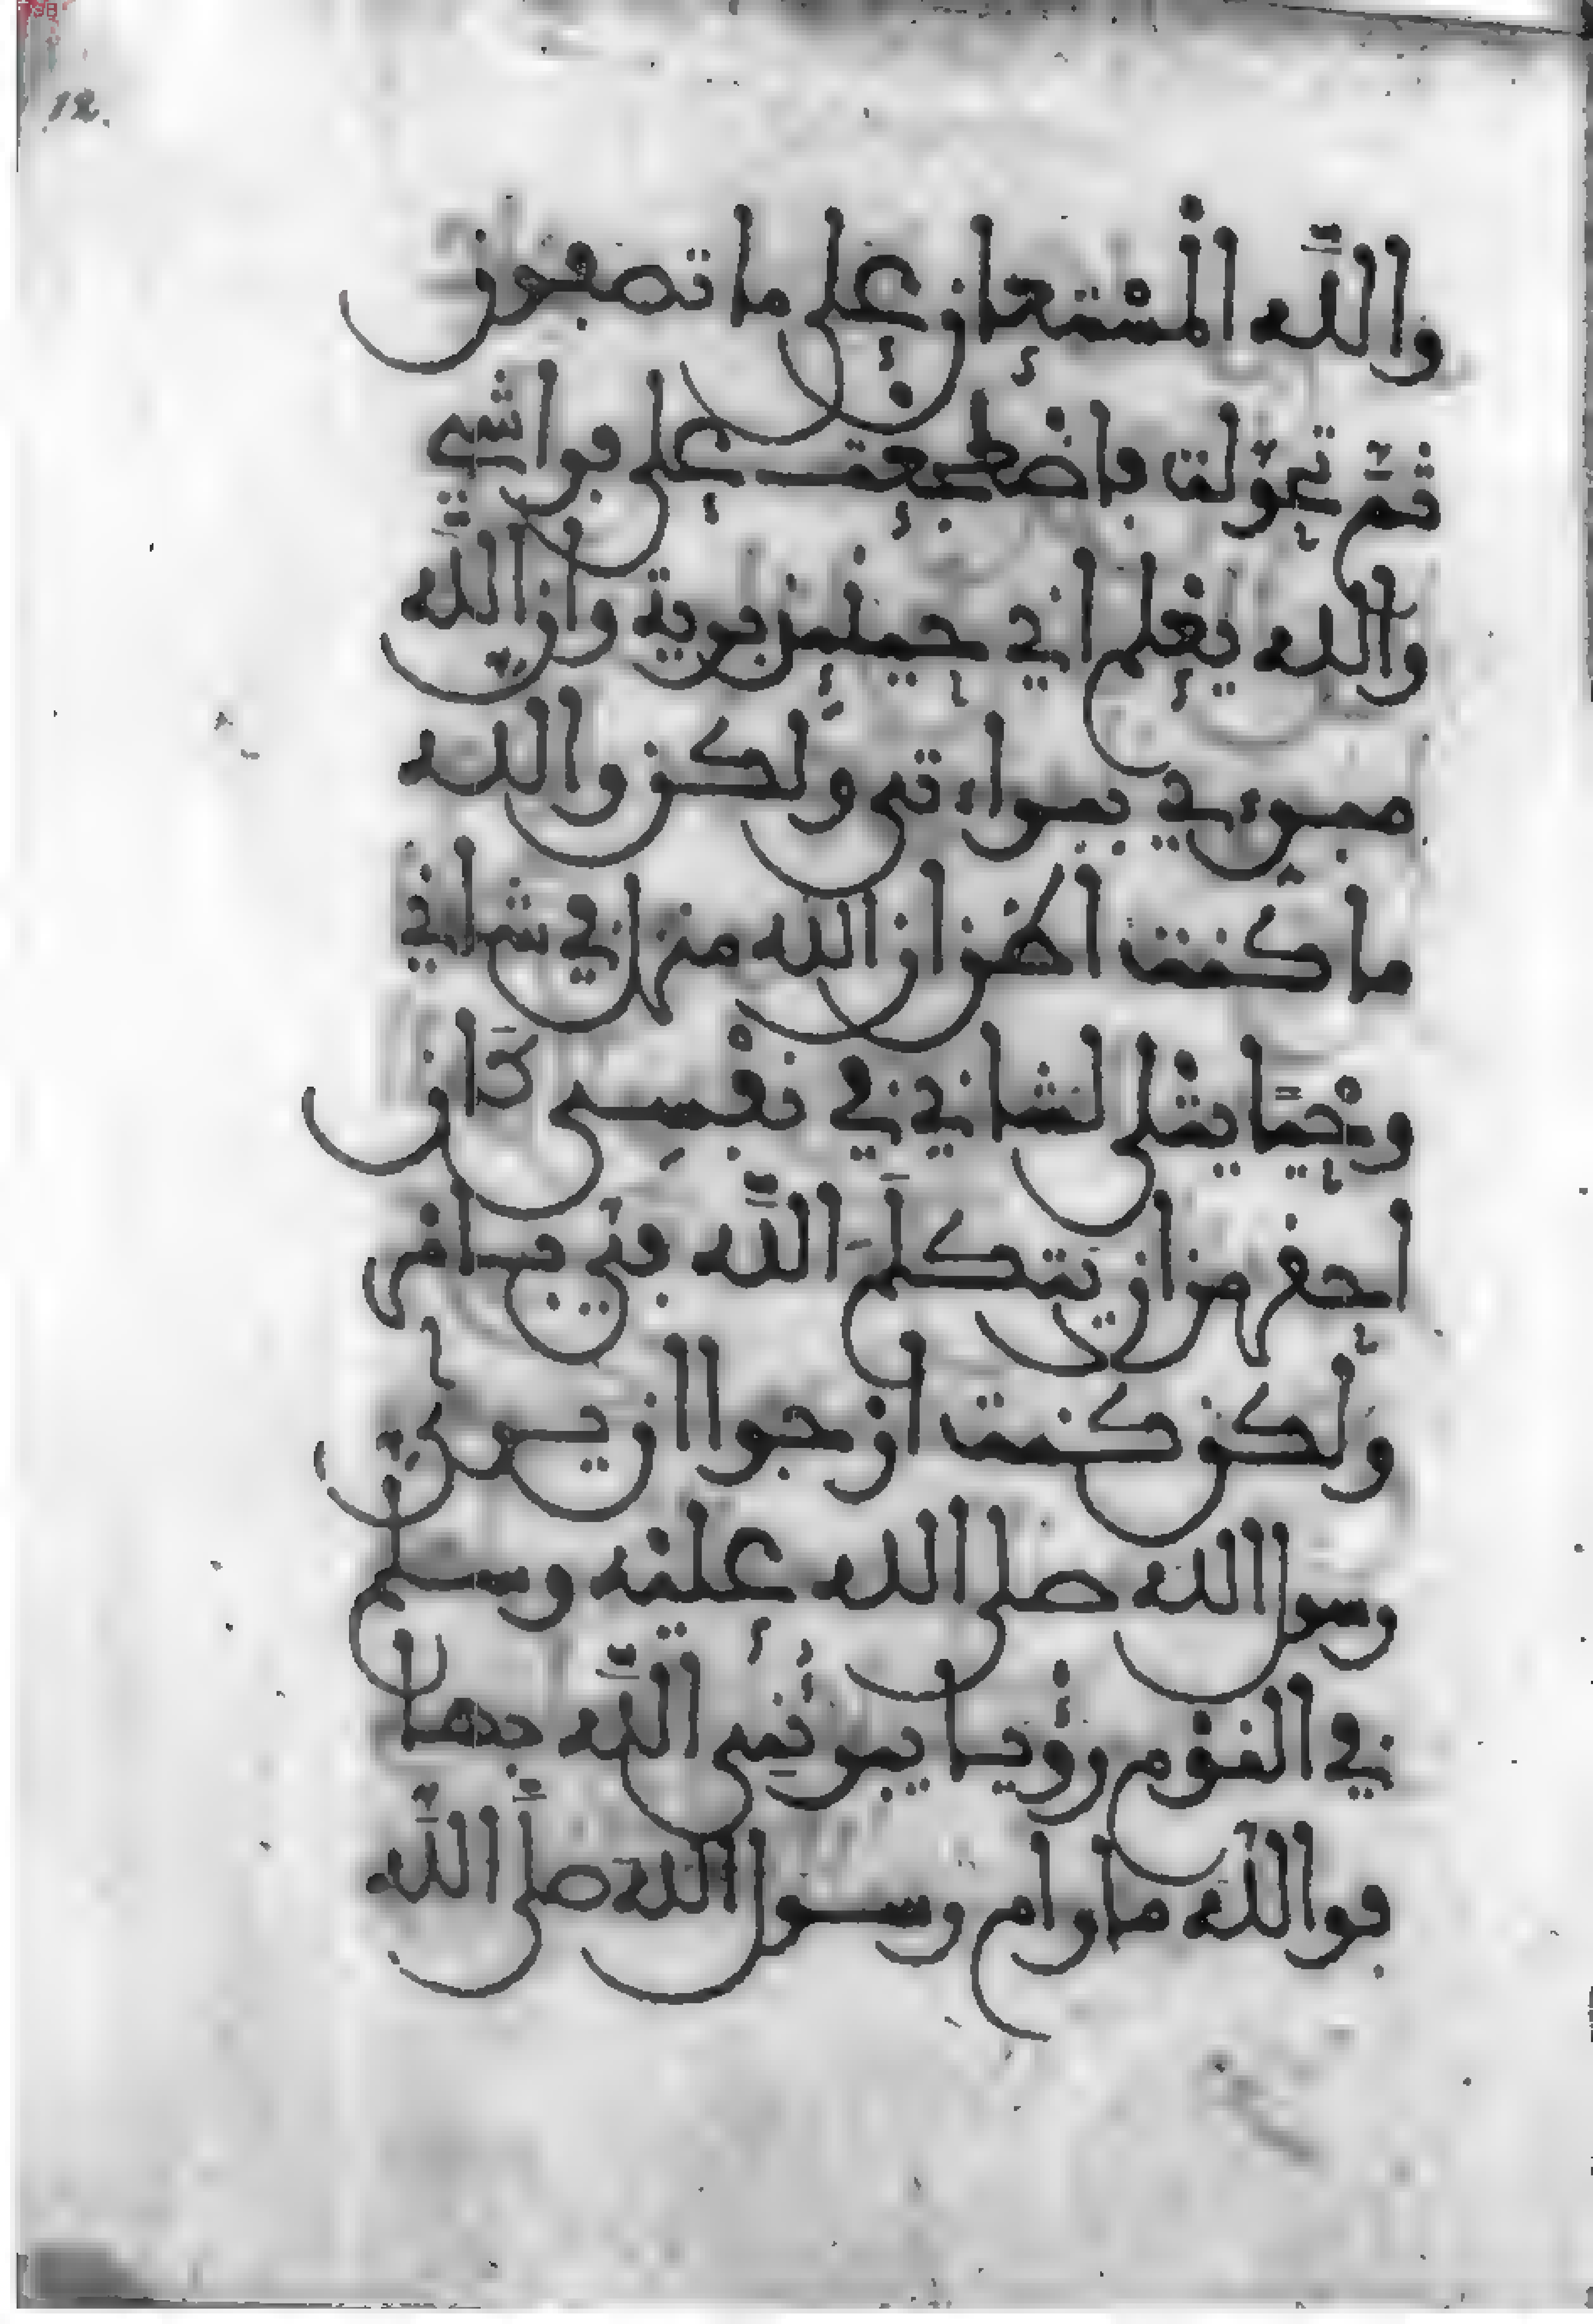 12.
والله المستعان على ما تصفون
ثم تحولت فاضطجعت على فراشي
والله يعلم اني حينئذ برية وان الله
مبرءي ببراءتي ولكن والله
ما كنت اظن ان الله منزل في شاني
وحيا يتلى لشاني في نفسي كان
احقر من ان يتكلم الله في بامر
ولكن كنت ارجوا ان يرى
رسول الله صلى الله عليه وسلم
في النوم رؤيا يبرئني الله بها
فوالله ما رام رسول الله صلى الله